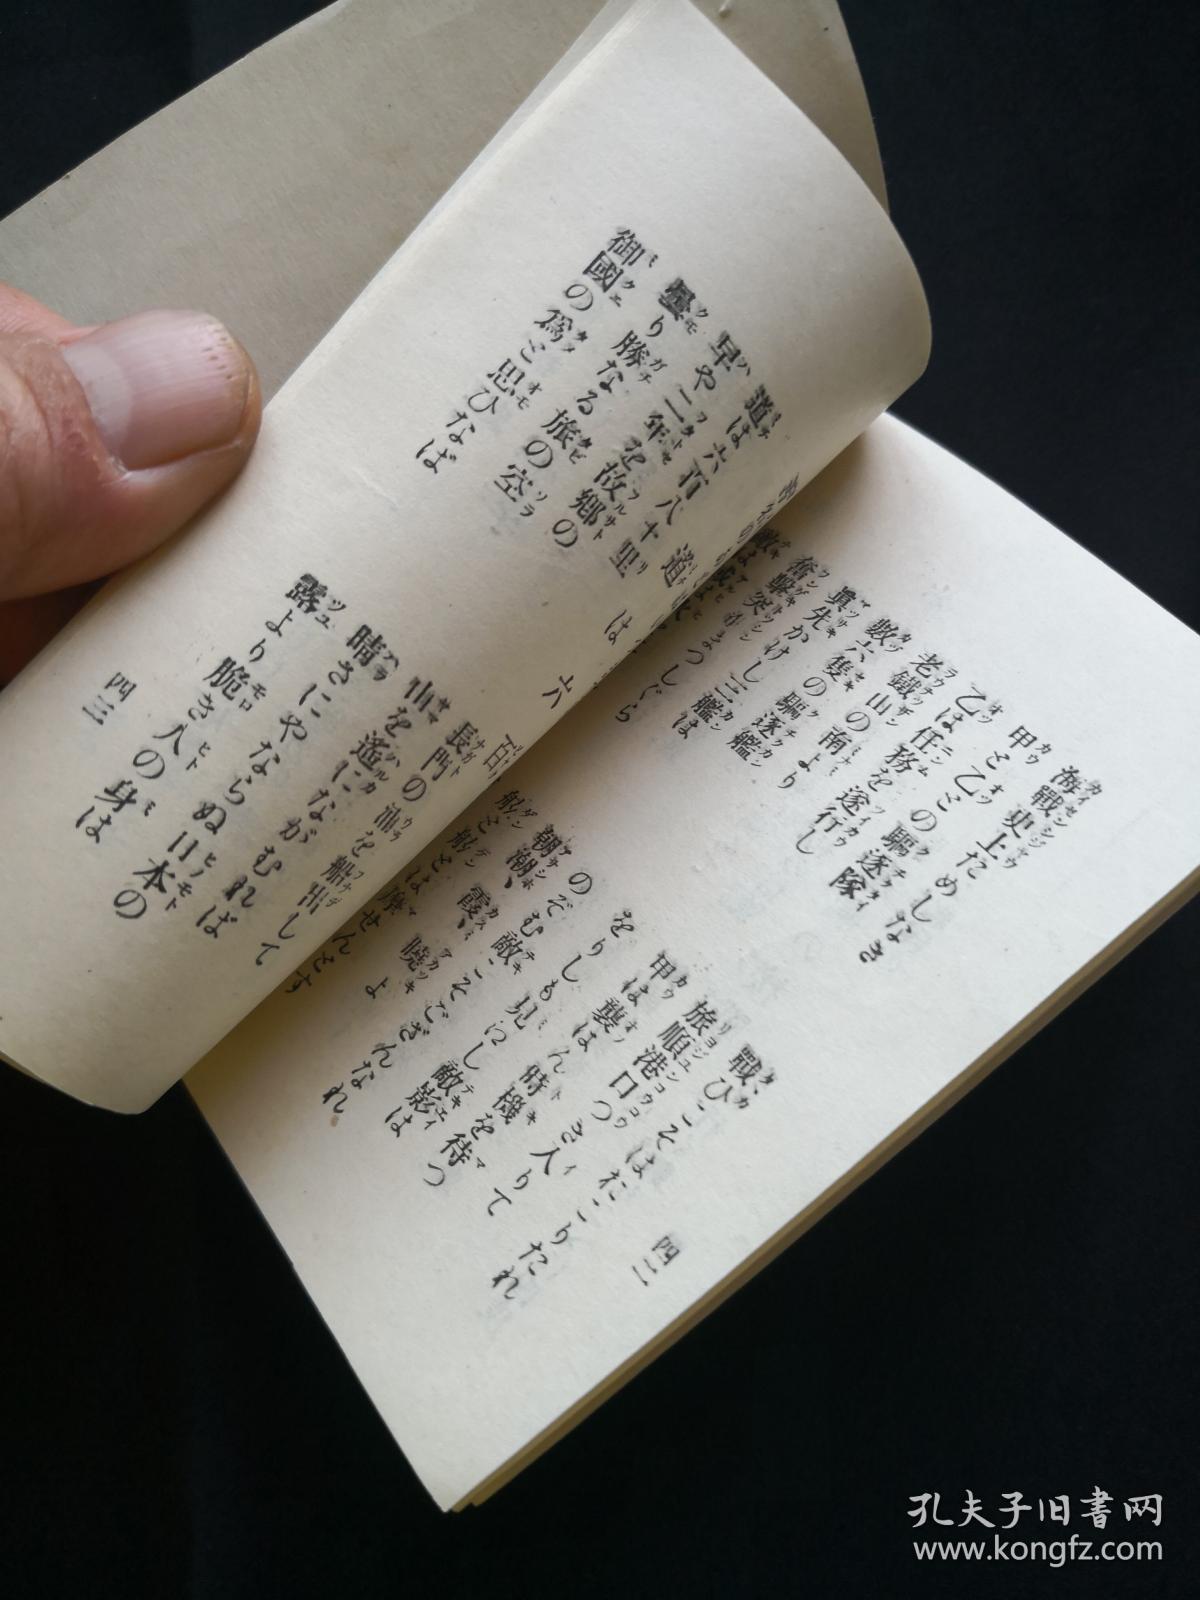 四二
海戰史上ためしなき
甲と乙との驅逐隊
乙は任務を遂行し
老鐵山の南より
數六隻の驅逐艦
眞先かけし三艦は
奮擊突
まつしぐら
戰ひこそはおこりたれ
旅順港口つき入りて
甲は襲は
をりしも見ん時機を待つ
のぞむ敵
朝潮、霞、
こそござんなれ
敵影は
曉よ
せんとす
道は六百
道は六百八十里
早や二年を故鄉の
曇り勝なる旅の空
御國の爲と思ひなば
長門の浦を船出して
山を遙にながむれば
晴さにやならぬ日本の
露より脆き人の身は
四三
孔夫子旧書网
www.kongfz.com